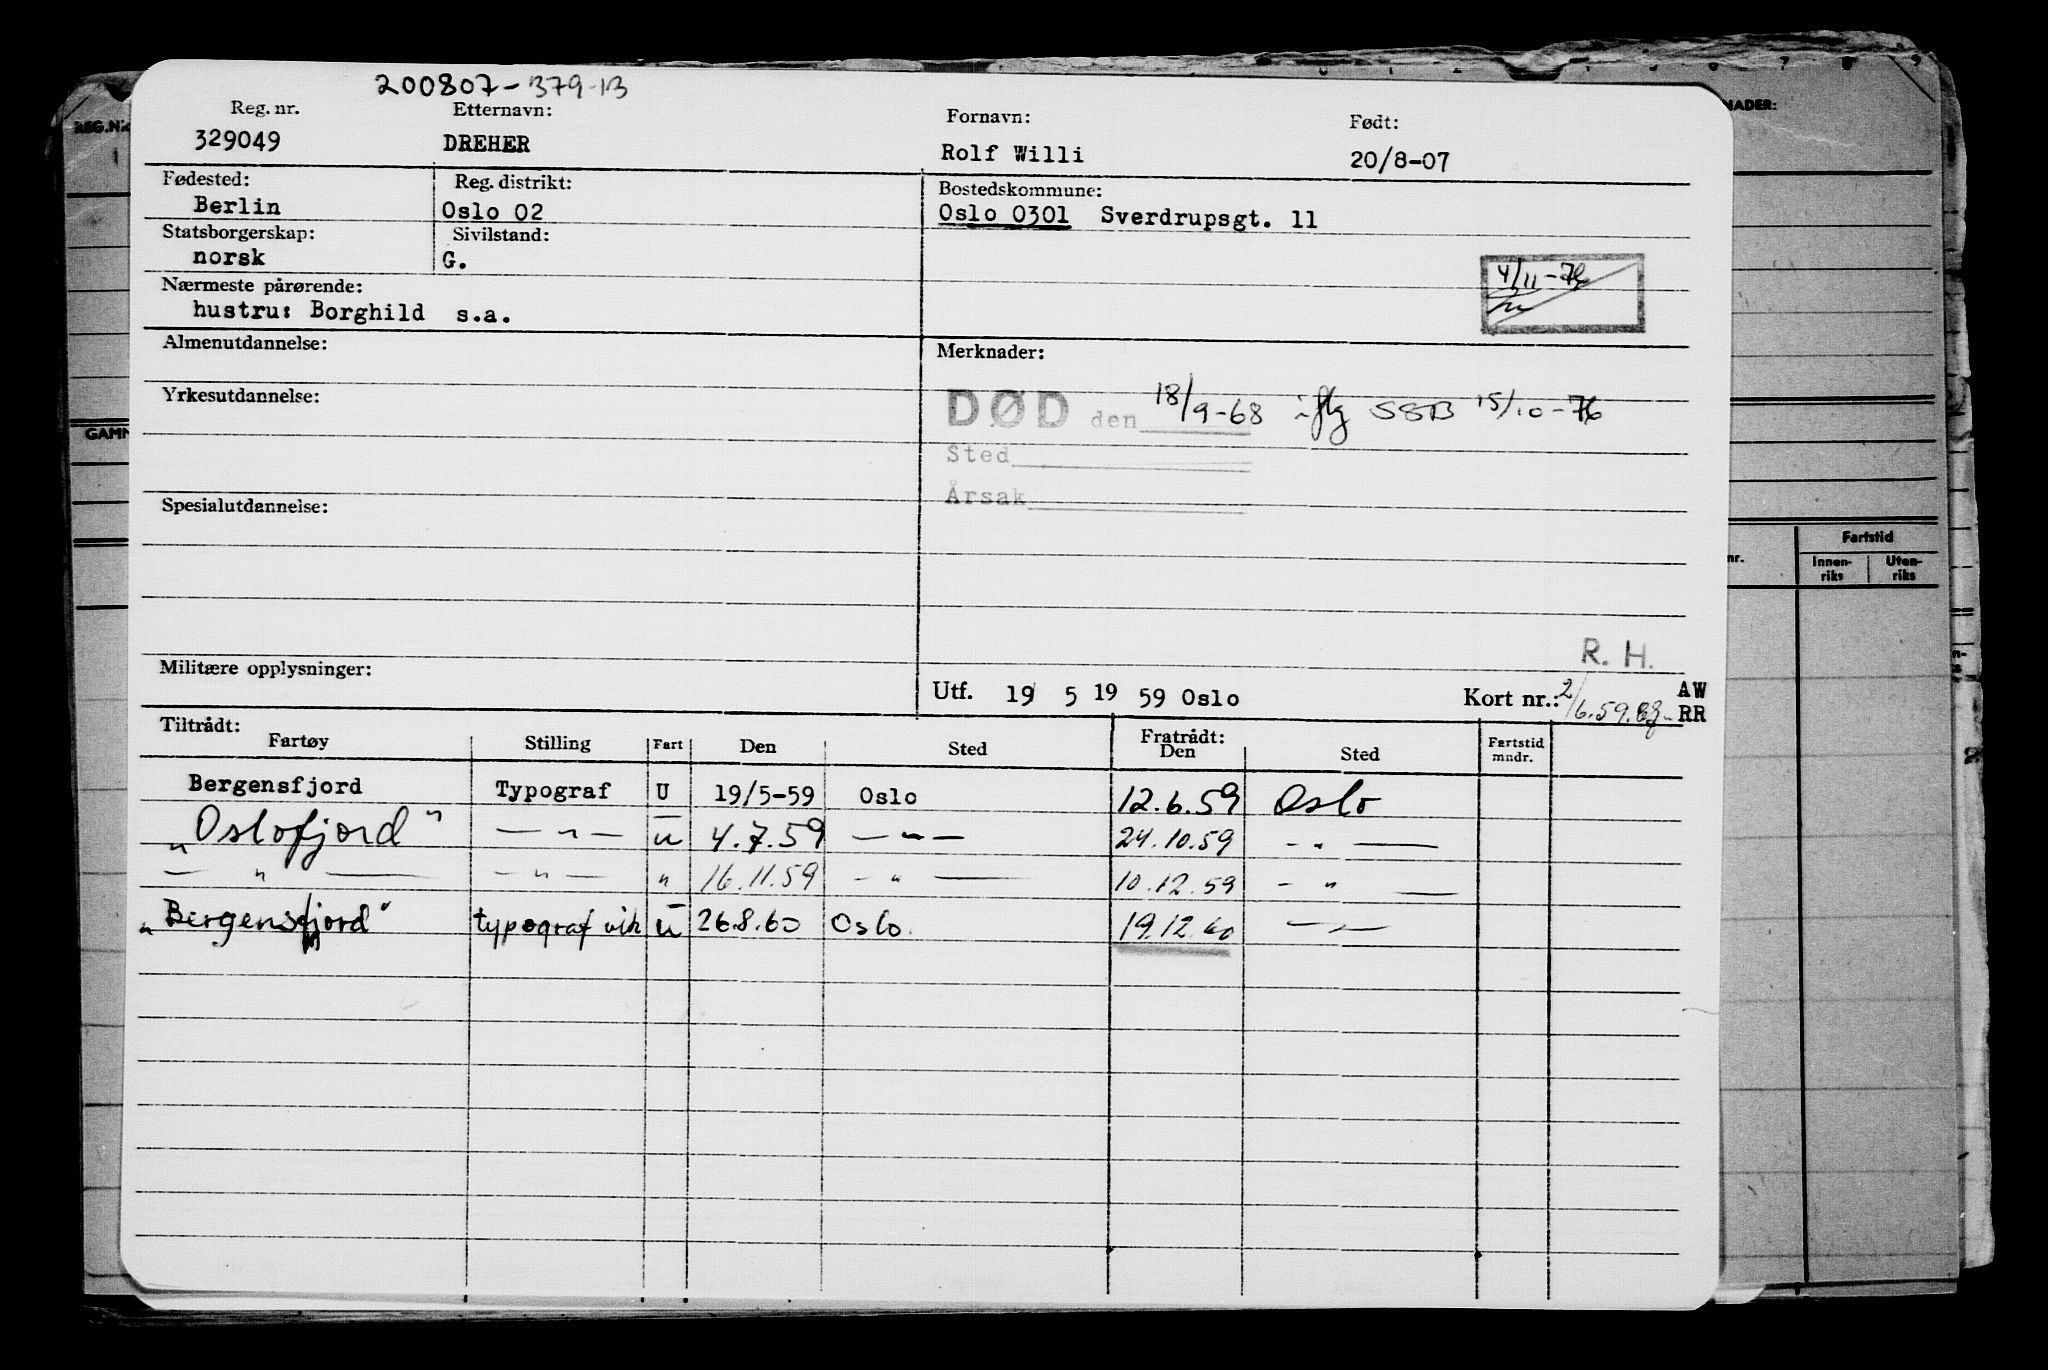 200807-379-13
Reg. nr. Etternavn: Fornavn: Født:
329049 DREHER Rolf Willi 20/8-07
Fødested: Reg. distrikt: Bostedskommune:
Berlin Oslo 02 Oslo 0301 Sverdrupsgt. 11
Statsborgerskap: Sivilstand:
norsk G.
4/11-76
Nærmeste pårørende:
hustru: Borghild s.a.
Almenutdannelse: Merknader:
Yrkesutdannelse:
DØD den 18/9-68 iflg SSB 15/10-76
Sted
Årsak
Spesialutdannelse:
R. H.
Militære opplysninger:
Utf. 19 5 19 59 Oslo Kort nr.: 2/6.59. AW RR
Tiltrådt: Fratrådt:
Fartøy Stilling Fart Den Sted Den Sted Fartstid mndr.
Bergensfjord Typograf U 19/5-59 Oslo 12.6.59 Oslo
"Oslofjord" — " — u 4.7.59 — " — 24.10.59 — " —
— " — — " — " 16.11.59 — " — 10.12.59 — " —
"Bergensfjord" typograf vik u 26.8.60 Oslo. 19.12.60 — " —
REG.NR.
NADER:
GAMM
nr.
Fartstid
Innen-riks Uten-riks